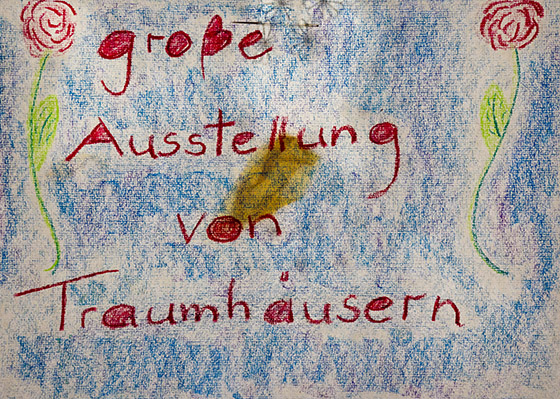 große
Ausstellung
von
Traumhäusern